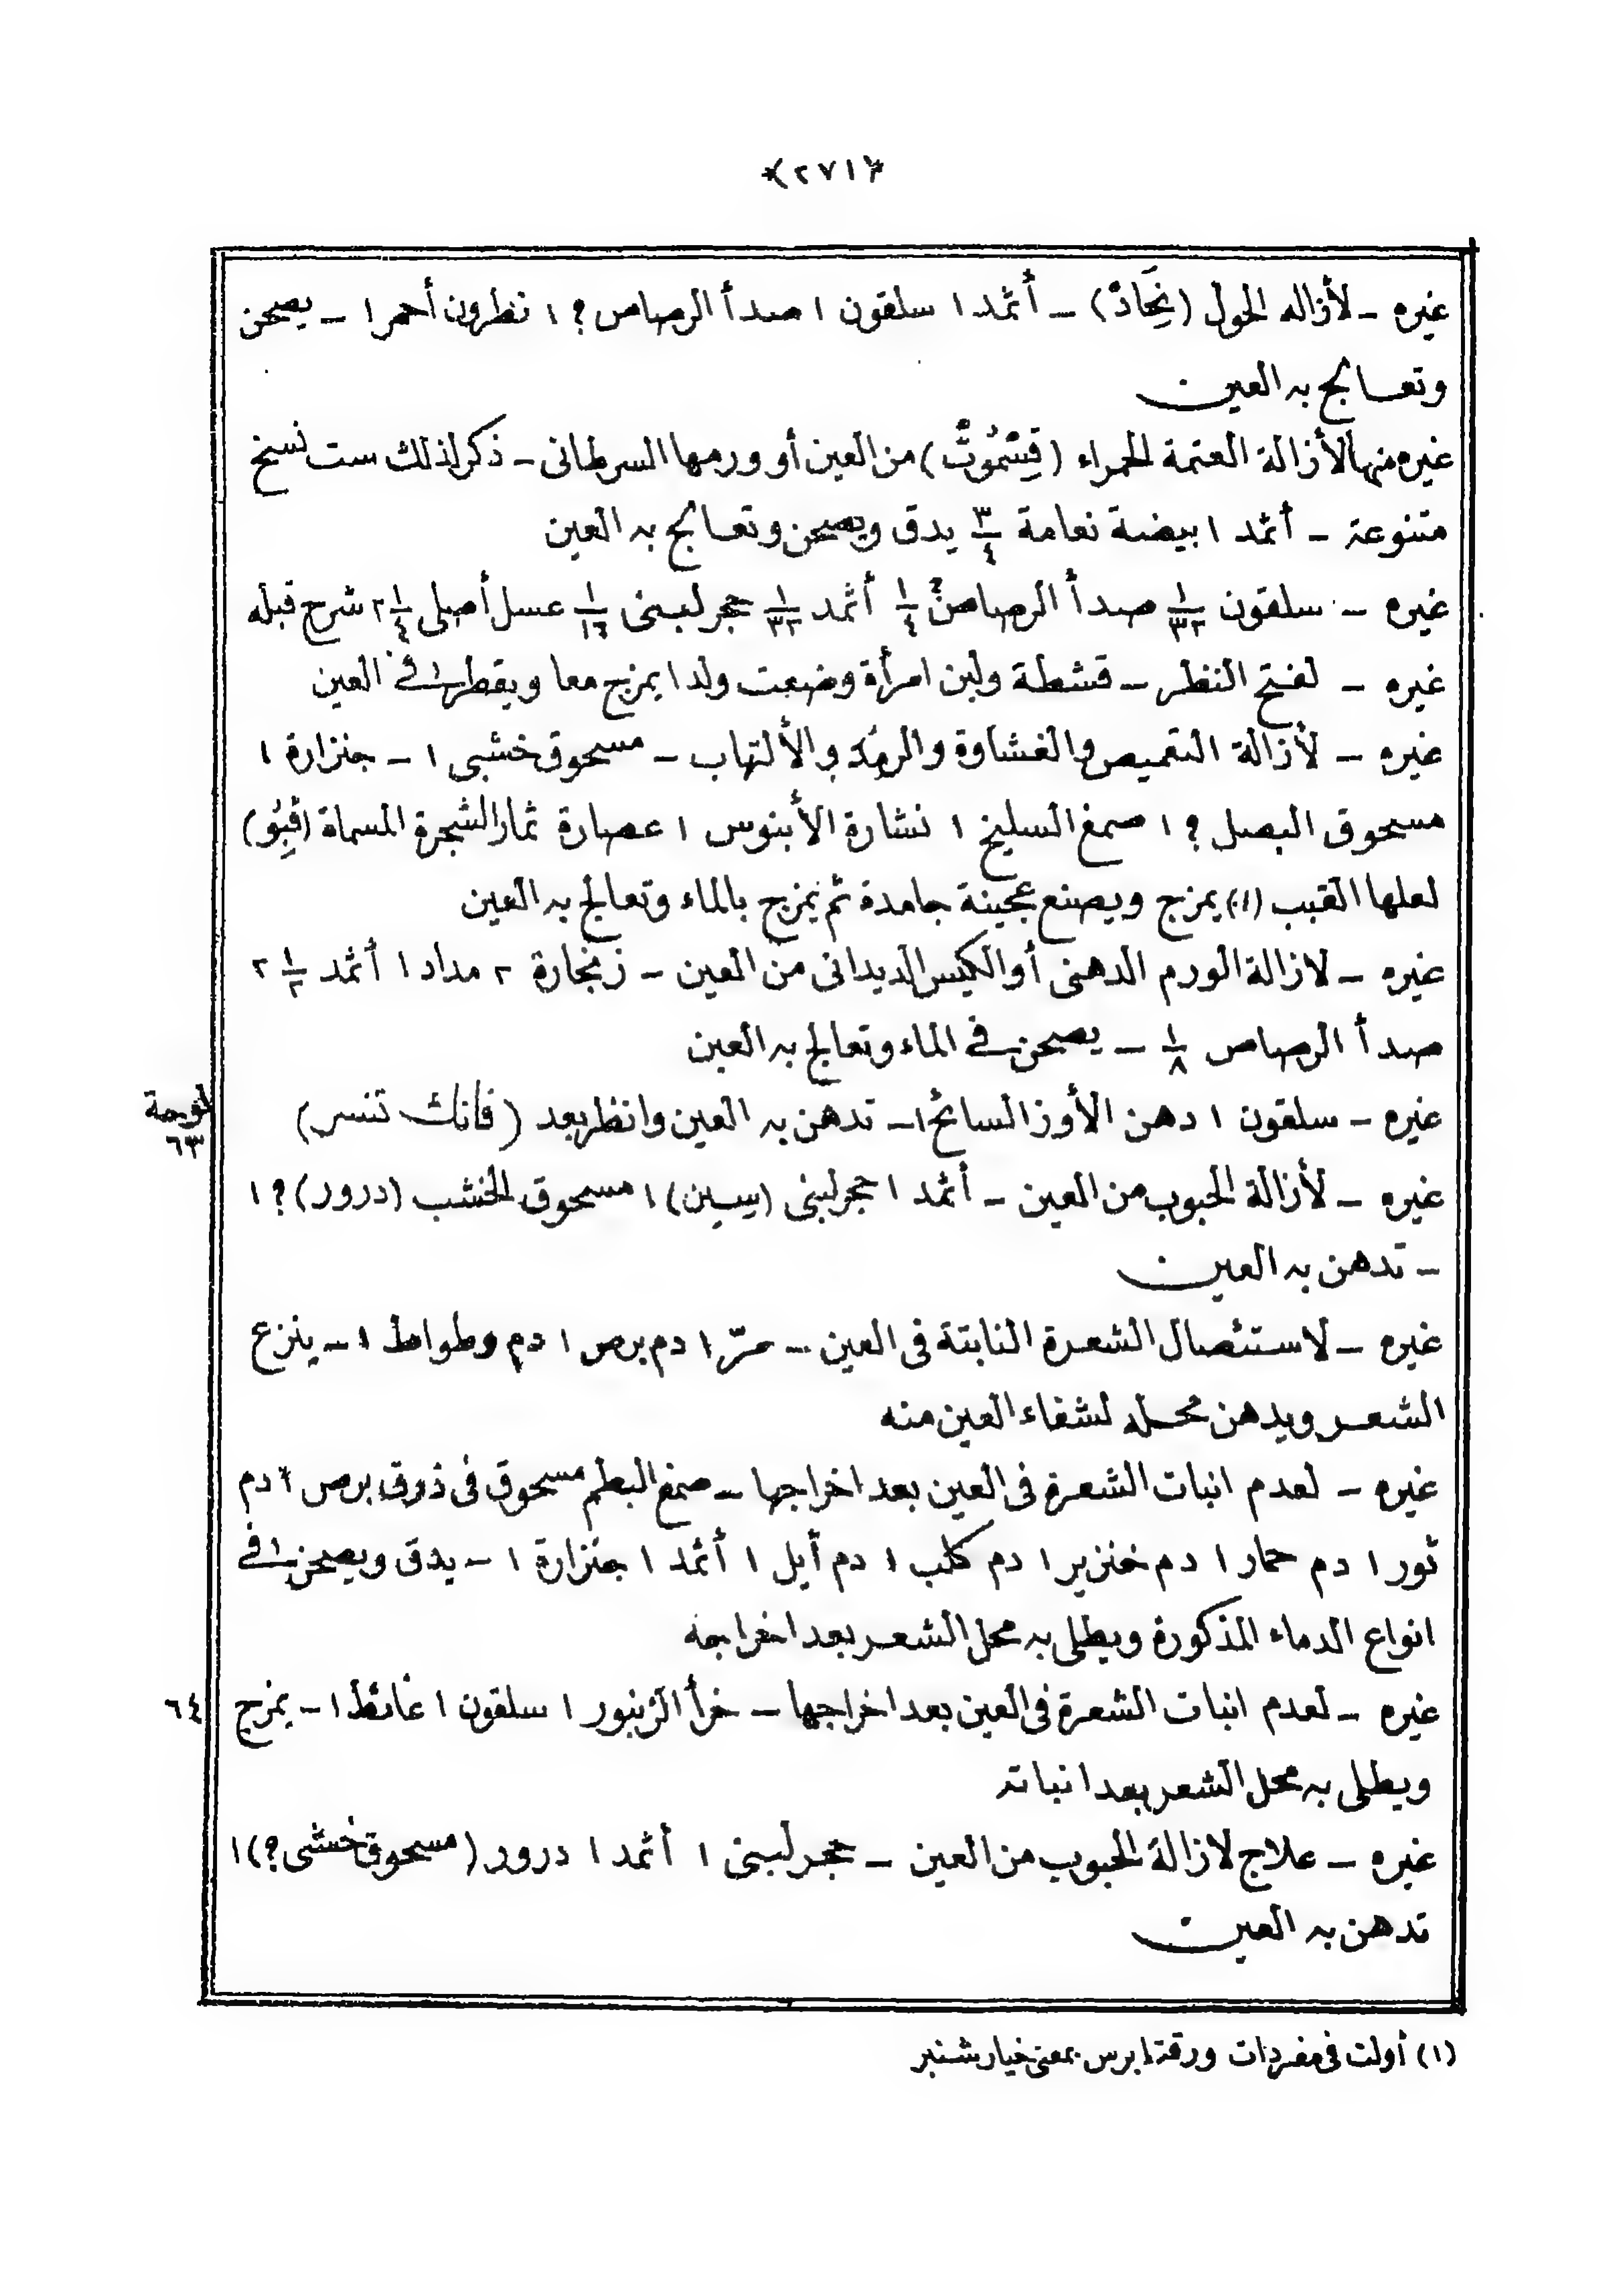 *(٢٧١)*
غيره - لأزاله الحول (نِحَادْ) - أثمد ١ سلقون ١ صدأ الرصاص ؟ ١ نطرون أحمر ١ - يصحن
وتعالج به العين
غيره منها لأزالة العتمة الحمراء (قِسْمُوتْ) من العين أو ورمها السرطانى - ذكر لذلك ست نسخ
متنوعة - أثمد ١ بيضة نعامة ٣/٤ يدق ويصحن وتعالج به العين
غيره - سلقون ١/٣٢ صدأ الرصاص ؟ ١/٤ أثمد ١/٣٢ حجر لبنى ١/١٦ عسل أصلى ٢ ١/٤ شرح قبله
غيره - لفتح النظر - قشطة ولبن امرأة وضعت ولدا يمزج معا ويقطر فى العين
غيره - لأزالة التغميص والغشاوة والرمد والألتهاب - مسحوق خشبى ١ - جنزارة ١
مسحوق البصل ؟ ١ صمغ السليخ ١ نشارة الأبنوس ١ عصارة ثمار الشجرة المسماة (قَبِبُو)
لعلها القبب (١) يمزج ويصنع عجينة جامدة ثم يمزج بالماء وتعالج به العين
غيره - لازالة الورم الدهنى أو الكيس الديدانى من العين - زنجارة ٢ مداد ١ أثمد ١/٢ ٢
صدأ الرصاص ١/٨ - يصحن فى الماء وتعالج به العين
غيره - سلقون ١ دهن الأوز السائح ١ - تدهن به العين وانظر بعد (فانك تنسر)
لوحة
٦٣
غيره - لأزالة الحبوب من العين - أثمد ١ حجر لبنى (سيين) ١ مسحوق الخشب (درور) ؟ ١
- تدهن به العين
غيره - لاستئصال الشعرة النابتة فى العين - مرّ ١ دم برص ١ دم وطواط ١ - ينزع
الشعر ويدهن محله لشفاء العين منه
غيره - لعدم انبات الشعرة فى العين بعد اخراجها - صمغ البطم مسحوق فى ذوق برص ١ دم
ثور ١ دم حمار ١ دم خنزير ١ دم كلب ١ دم أيل ١ أثمد ١ جنزارة ١ - يدق ويصحن فى
انواع الدماء المذكورة ويطلى به محل الشعر بعد اخراجه
غيره - لعدم انبات الشعرة فى العين بعد اخراجها - خرأ الزنبور ١ سلقون ١ غائط ١ - يمزج
٦٤
ويطلى به محل الشعر بعد انباته
غيره - علاج لازالة الحبوب من العين - حجر لبنى ١ أثمد ١ درور (مسحوق خشبى ؟) ١
تدهن به العين
(١) أولت فى مفردات ورقة ابرس بمعنى خيار شنبر